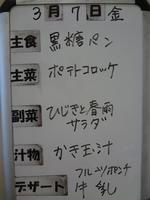 3月7日金
主食 黒糖パン
主菜 ポテトコロッケ
副菜 ひじきと春雨
サラダ
汁物 かき玉汁
デザート フルーツポンチ
牛乳